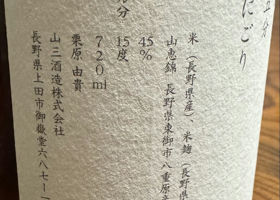 五分
にごり
米（長野県産）、米麹（長野県
山恵錦 長野県東御市八重原
45%
15度
720ml
栗原由貴
山三酒造株式会社
長野県上田市御嶽堂六八七ー一